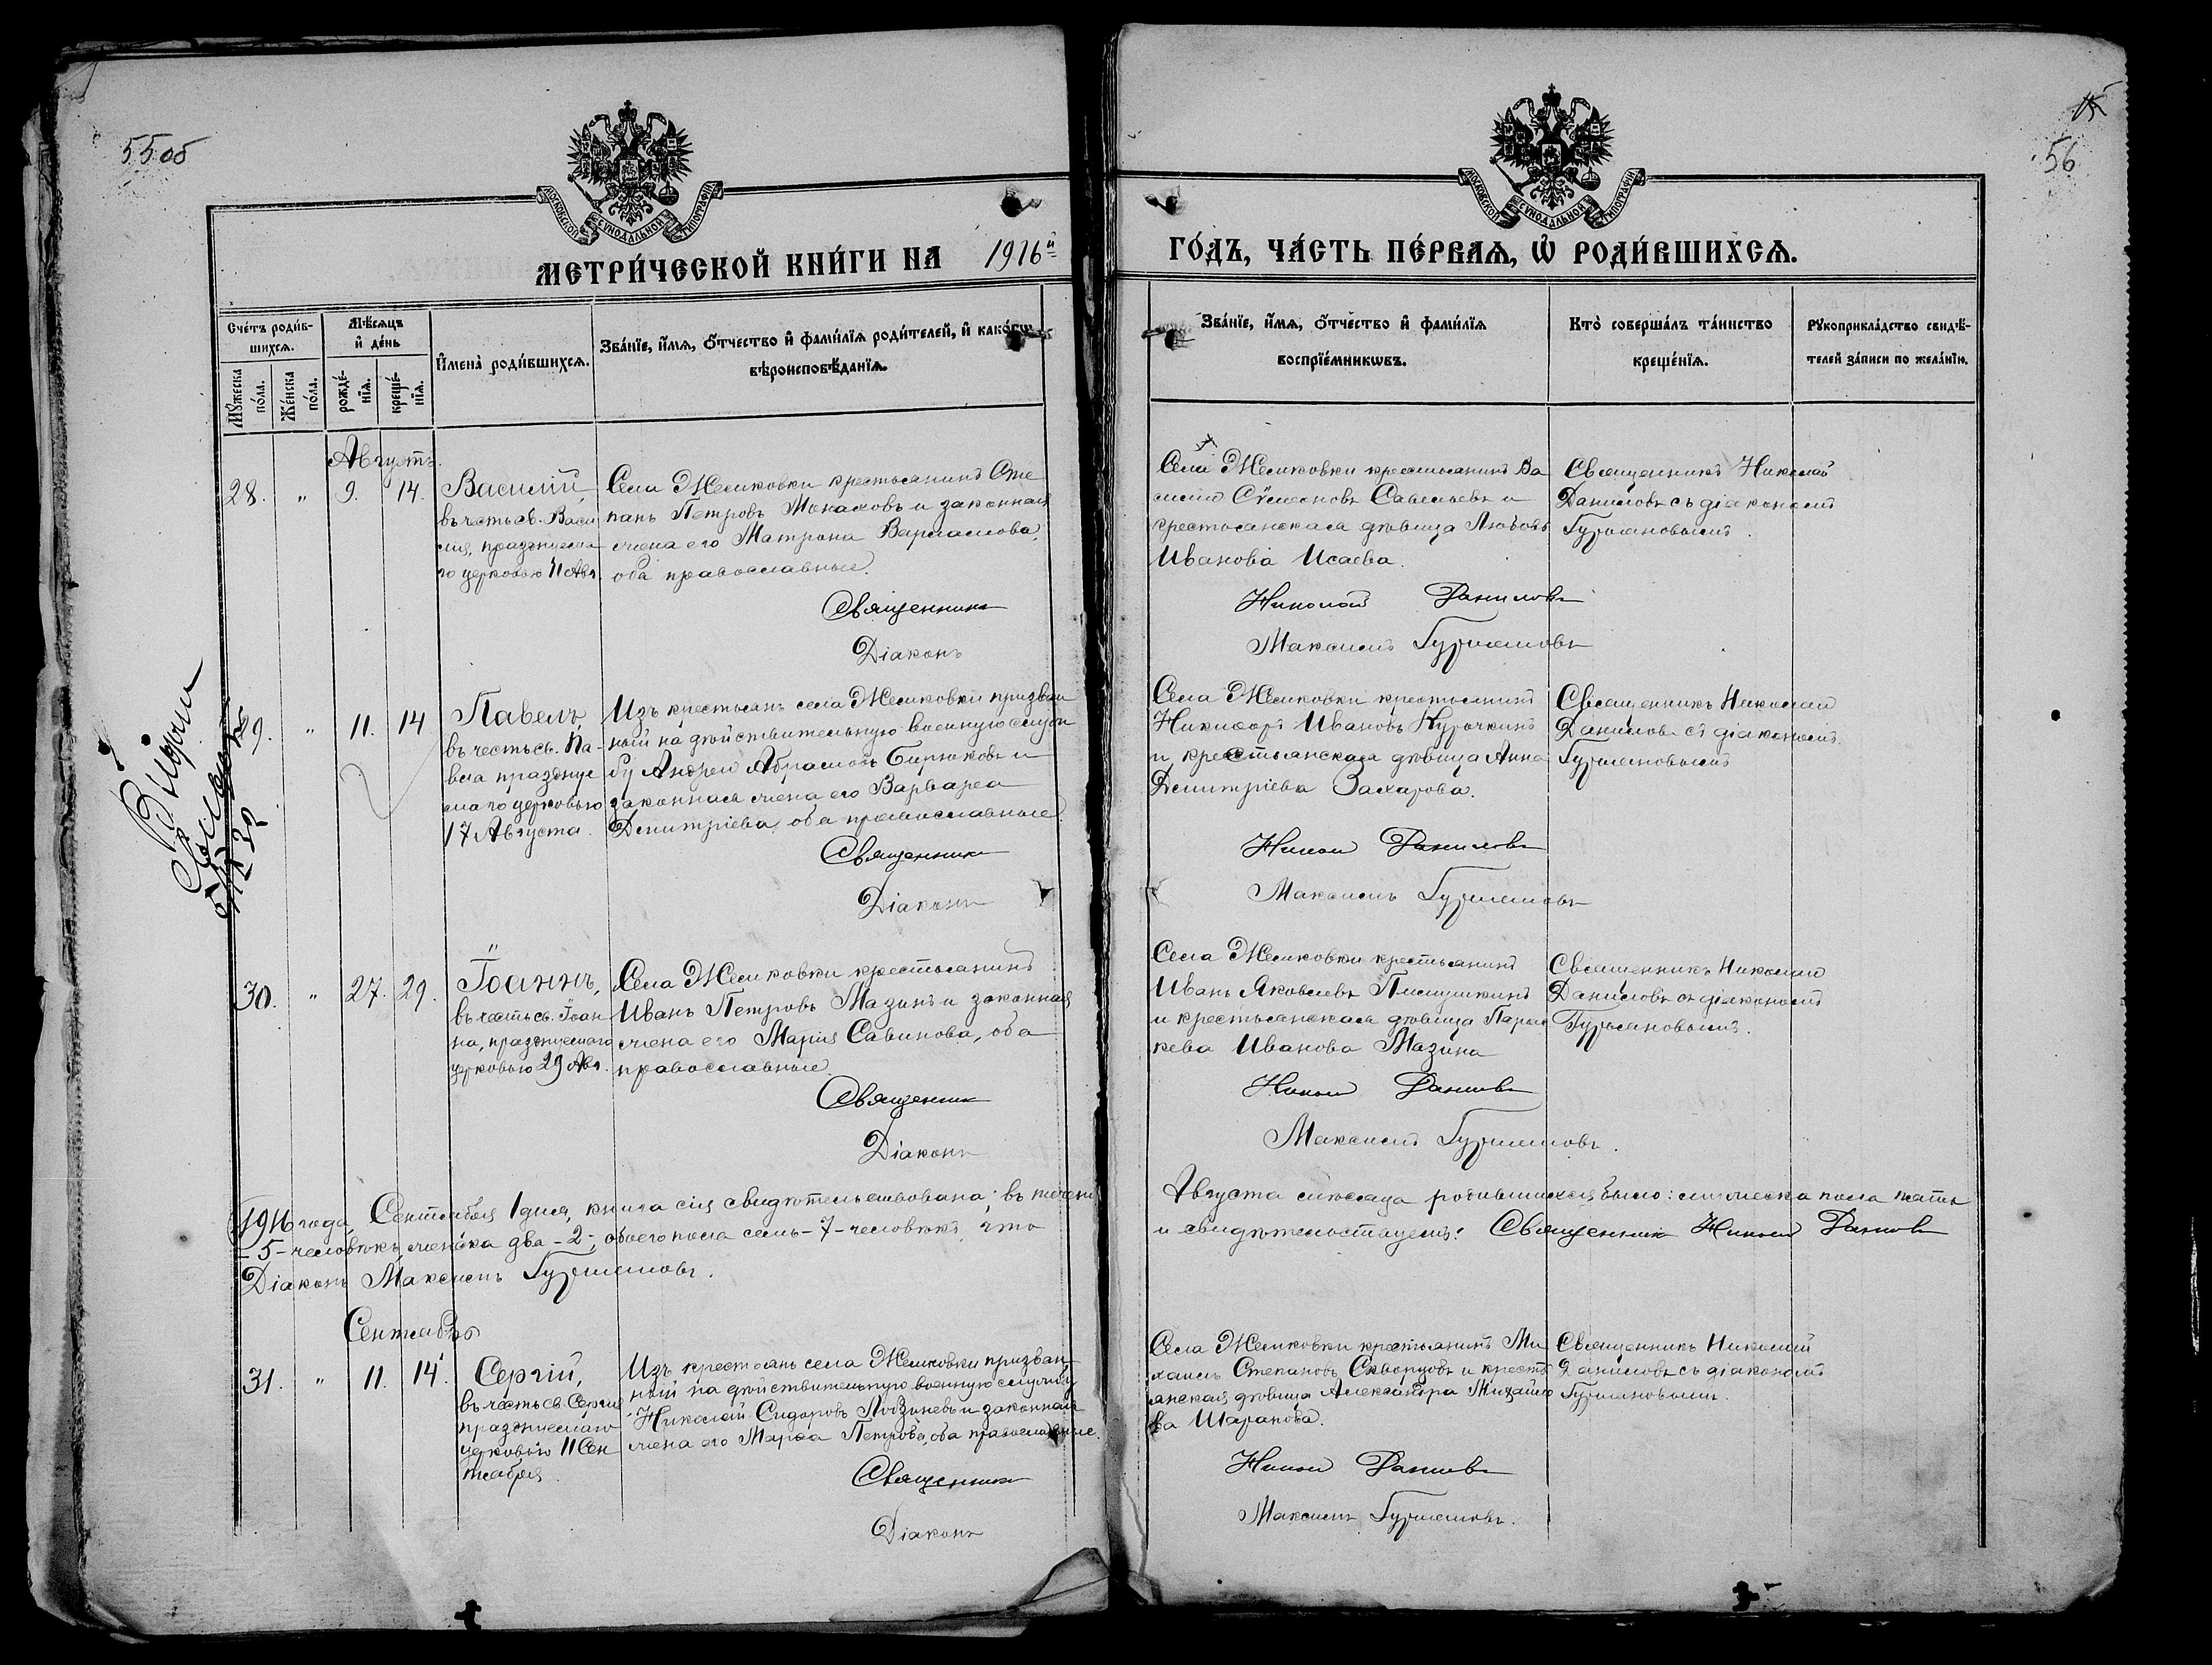 55 об
15
56
МОСКОВСКОЙ СѴНОДАЛЬНОЙ ТИПОГРАФІИ
МОСКОВСКОЙ СѴНОДАЛЬНОЙ ТИПОГРАФІИ
МЕТРИ́ЧЕСКОЙ КНИ́ГИ НА 1916й
ГО́ДЪ, ЧА́СТЬ ПЕ́РВАЯ, Ѡ҆ РОДИ́ВШИХСЯ.
Сче́тъ роди́в-
шихся.
Мꙋ́жеска по́ла.
Же́нска по́ла.
Мѣ́сяцъ
и҆ де́нь
рожде́-
нїя.
креще́-
нїя.
И҆мена̀ роди́вшихся.
Зва́нїе, и҆́мя, ѻ҆́тчество и҆ фами́лїя роди́телей, и҆ како́гѡ
вѣроисповѣ́данїя.
Зва́нїе, и҆́мя, ѻ҆́тчество и҆ фами́лїя
воспрїе́мникѡвъ.
Кто̀ соверша́лъ та́инство
креще́нїя.
Рꙋкоприкла́дство свидѣ́-
телей за́писи по жела́нїю.
Августъ.
28. „ 9. 14.
Василій,
въ честь св. Васи
лія, празднуема
го церковью 11 Авг.
Села Жемковки крестьянинъ Сте
панъ Петровъ Монаховъ и законная
жена его Матрона Варламова,
оба православные.
Священникъ
Діаконъ
Села Жемковки крестьянинъ Ва
силій Сѵмеоновъ Савельевъ и
крестьянская дѣвица Любовь
Иванова Исаева.
Николай Даниловъ
Максимъ Гурьяновъ
Священникъ Николай
Даниловъ съ діакономъ
Гурьяновымъ.
29. „ 11. 14
Павелъ,
въ честь св. Па-
вла празднуе
маго церковью
17 Августа.
Изъ крестьянъ села Жемковки призван
ный на дѣйствительную военную служ
бу Андрей Абрамовъ Бирюковъ и
законная жена его Варвара
Димитріева, оба православные.
Священникъ
Діаконъ
Села Жемковки крестьянинъ
Никифоръ Ивановъ Курочкинъ
и крестьянская дѣвица Анна
Димитріева Захарова.
Николай Даниловъ
Максимъ Гурьяновъ
Священникъ Николай
Даниловъ съ діакономъ
Гурьяновымъ
30. „ 27. 29.
Іоаннъ,
въ честь св. Іоан
на, празднуемаго
церковью 29 Авг.
Села Жемковки крестьянинъ
Иванъ Петровъ Мазинъ и законная
жена его Марія Савинова, оба
православные.
Священникъ
Діаконъ
Села Жемковки крестьянинъ
Иванъ Яковлевъ
и крестьянская дѣвица Парас
кева Иванова Мазина
Николай Даниловъ
Максимъ Гурьяновъ.
Священникъ Николай
Даниловъ съ діакономъ
Гурьяновымъ.
1916 года, Сентября 1 дня, книга сія свидѣтельствована; въ течени
Августа мѣсяца родившихся было: мужеска пола пять
-5- человѣкъ, женска два -2-, обоего пола семь -7- человѣкъ, что
и свидѣтельствуемъ: Священникъ Николай Даниловъ
Діаконъ Максимъ Гурьяновъ.
Сентябрь
31. „ 11. 14.
Сергій,
въ честь св. Сергія
празднуемаго
церковью 11 Сен
тября.
Изъ крестьянъ села Жемковки призван
ный на дѣйствительную военную службу
Николай Сидоровъ и законная
жена его Марѳа Петрова, оба православные.
Священникъ
Діаконъ
Села Жемковки крестьянинъ Ми
хаилъ Степановъ Скворцовъ и кресть
янская дѣвица Александра Михайло
ва Шарапова.
Николай Даниловъ
Максимъ Гурьяновъ.
Священникъ Николай
Даниловъ съ діакономъ
Гурьяновымъ.